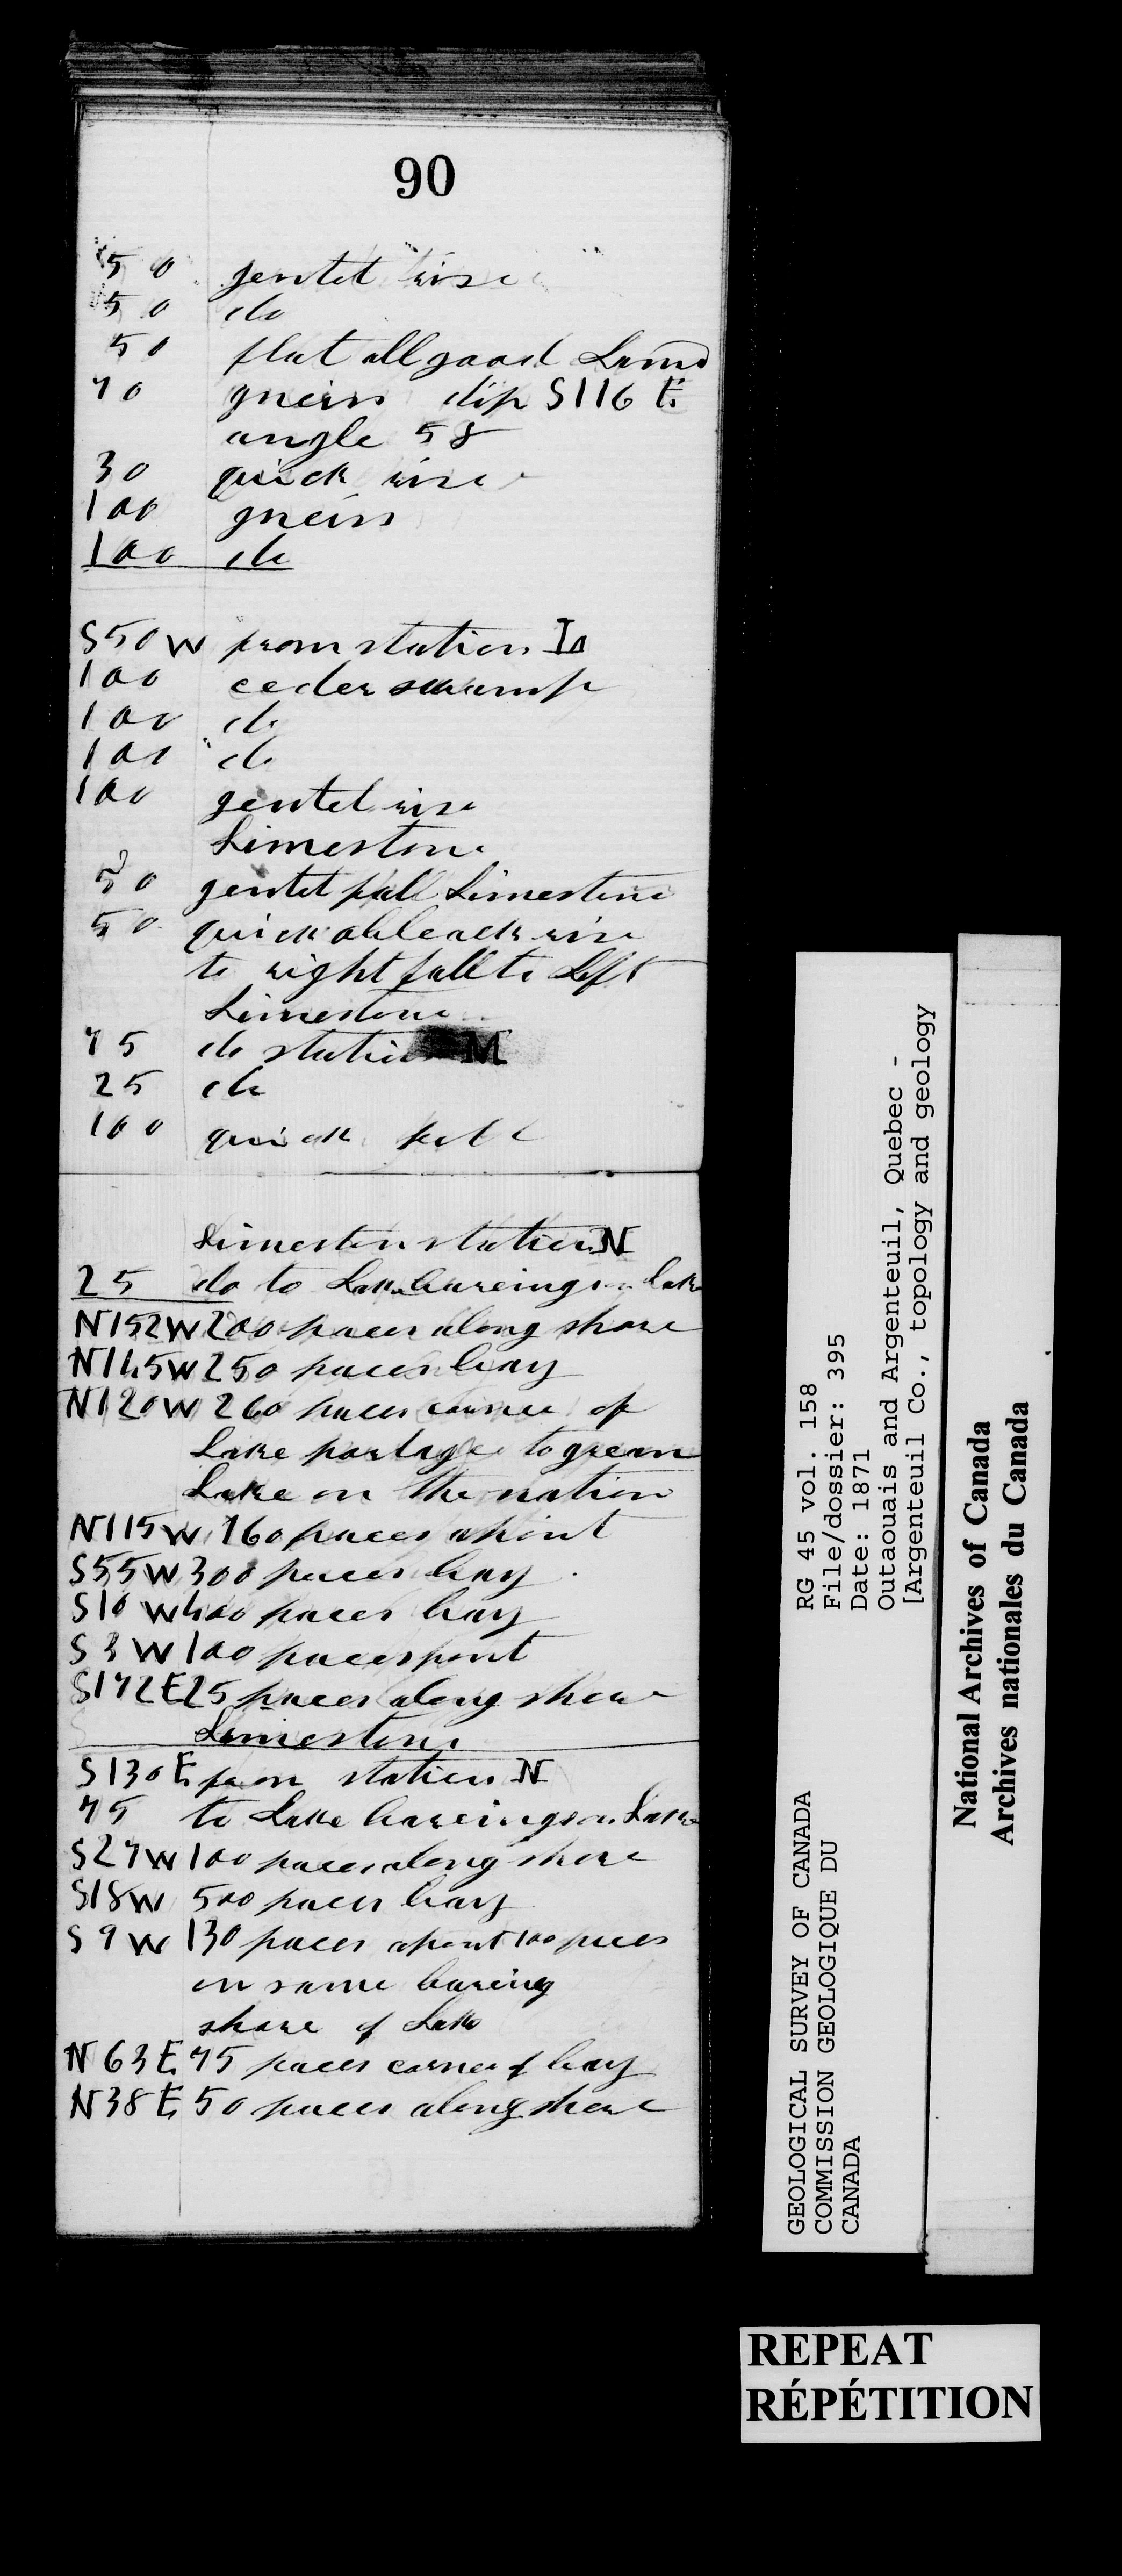 90
50 gentel rise
50 do
50 flat all good Land
70 gneiss dip S116 E
angle 58
30 quick rise
100 gneiss
100 do
S50W from station L
100 ceder swamp
100 do
100 do
100 gentel rise
Limestone
50 gentel fall Limestone
50 quick rise
to right fall to Left
Limestone
75 do station M
25 do
100 quick fall
Limeston station N
25 do to Lake Lake
N152W 200 paces along shore
N145W 250 paces bay
N120W 260 paces corner of
Lake portage to green
Lake on the nation
N115W 160 paces apoint
S55W 300 paces bay
S10W 400 paces bay
S3W 100 paces point
S172E 25 paces along shore
Limestone
S130E from station N
75 to Lake Lake
S27W 100 paces along shore
S18W 500 paces bay
S9W 130 paces apoint 100 paces
on same bareing
shore of Lake
N63E 75 paces corner of bay
N38E 50 paces along shore
GEOLOGICAL SURVEY OF CANADA
COMMISSION GEOLOGIQUE DU
CANADA
RG 45 vol. 158
File/dossier: 395
Date: 1871
Outaouais and Argenteuil, Quebec -
[Argenteuil Co., topology and geology
National Archives of Canada
Archives nationales du Canada
REPEAT
RÉPÉTITION